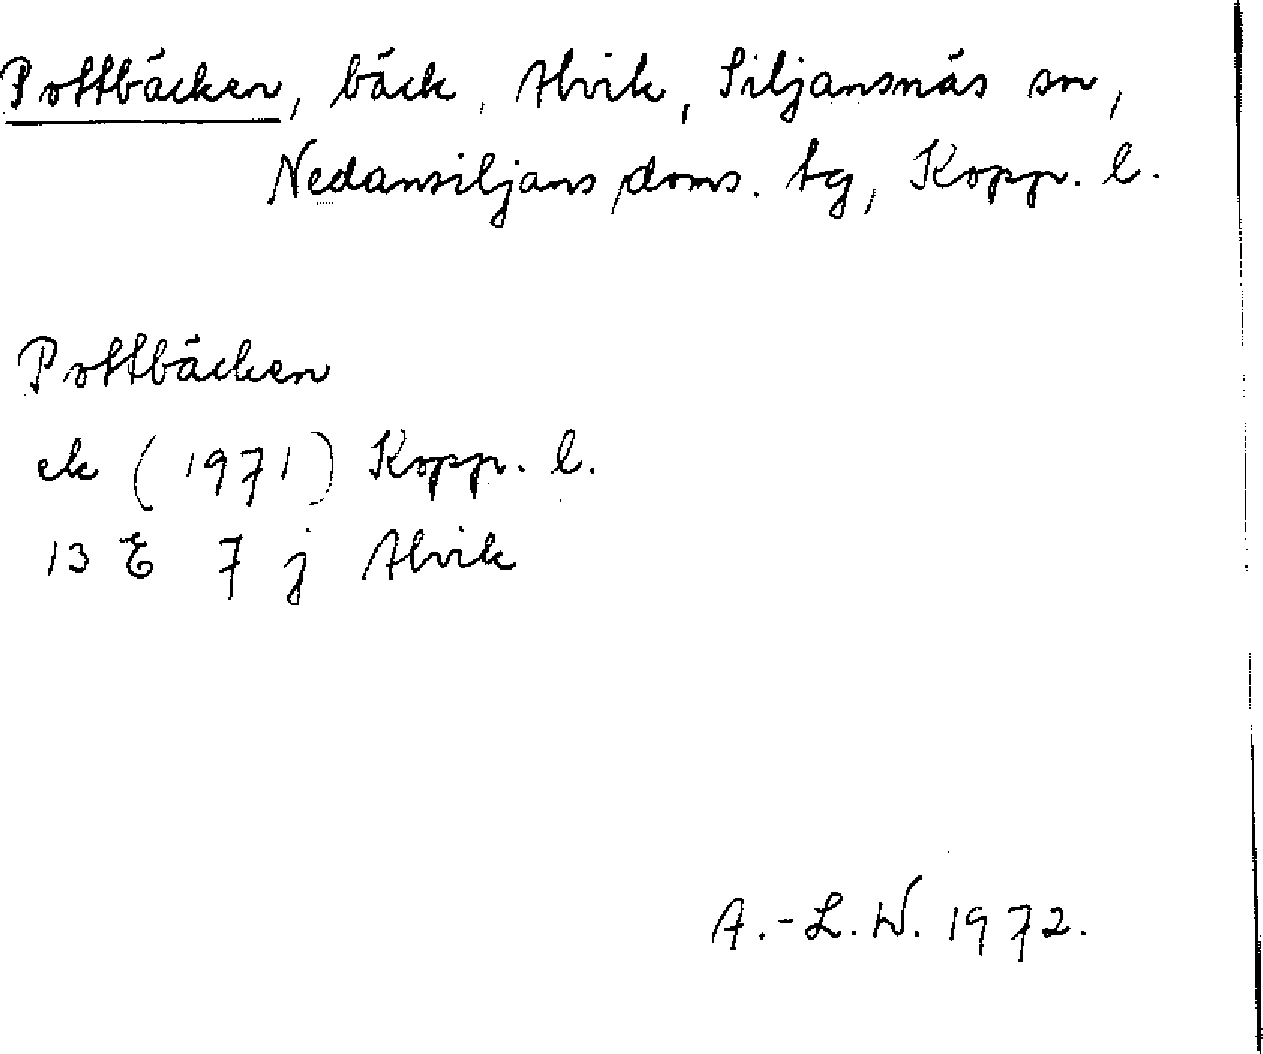 Pottbäcken, bäck, Alvik, Siljansnäs sn,
Nedansiljans doms. tg, Kopp. l.
Pottbäcken
ek (1971) Kopp. l.
13 E 7 j Alvik
A.-L. W. 1972.